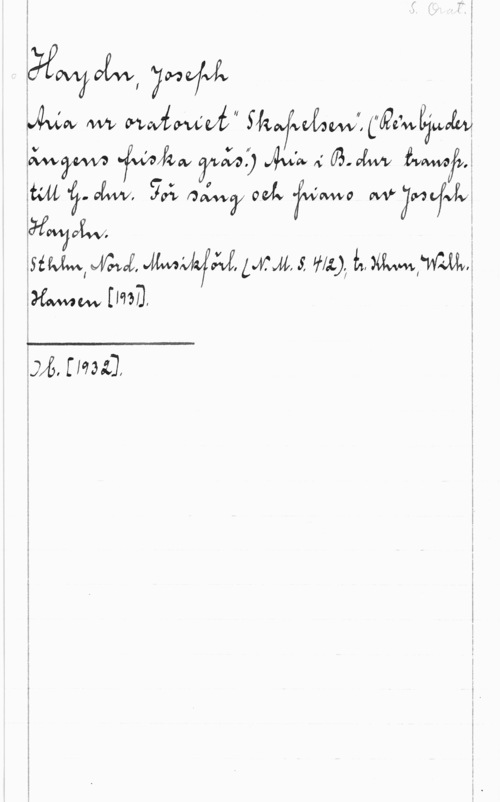 S. Orat.
Haydn, Joseph
Aria ur oratoriet "Skapelsen". ("Ren bjuder
ängens friska gräs".) Aria i B-dur transp.
till G-dur. För sång och piano av Joseph
Haydn.
Sthlm, Nord. Musikförl. (N. M. S. 412); tr. Khvn, Wilh.
Hansen [1931].
Ib. [1932].